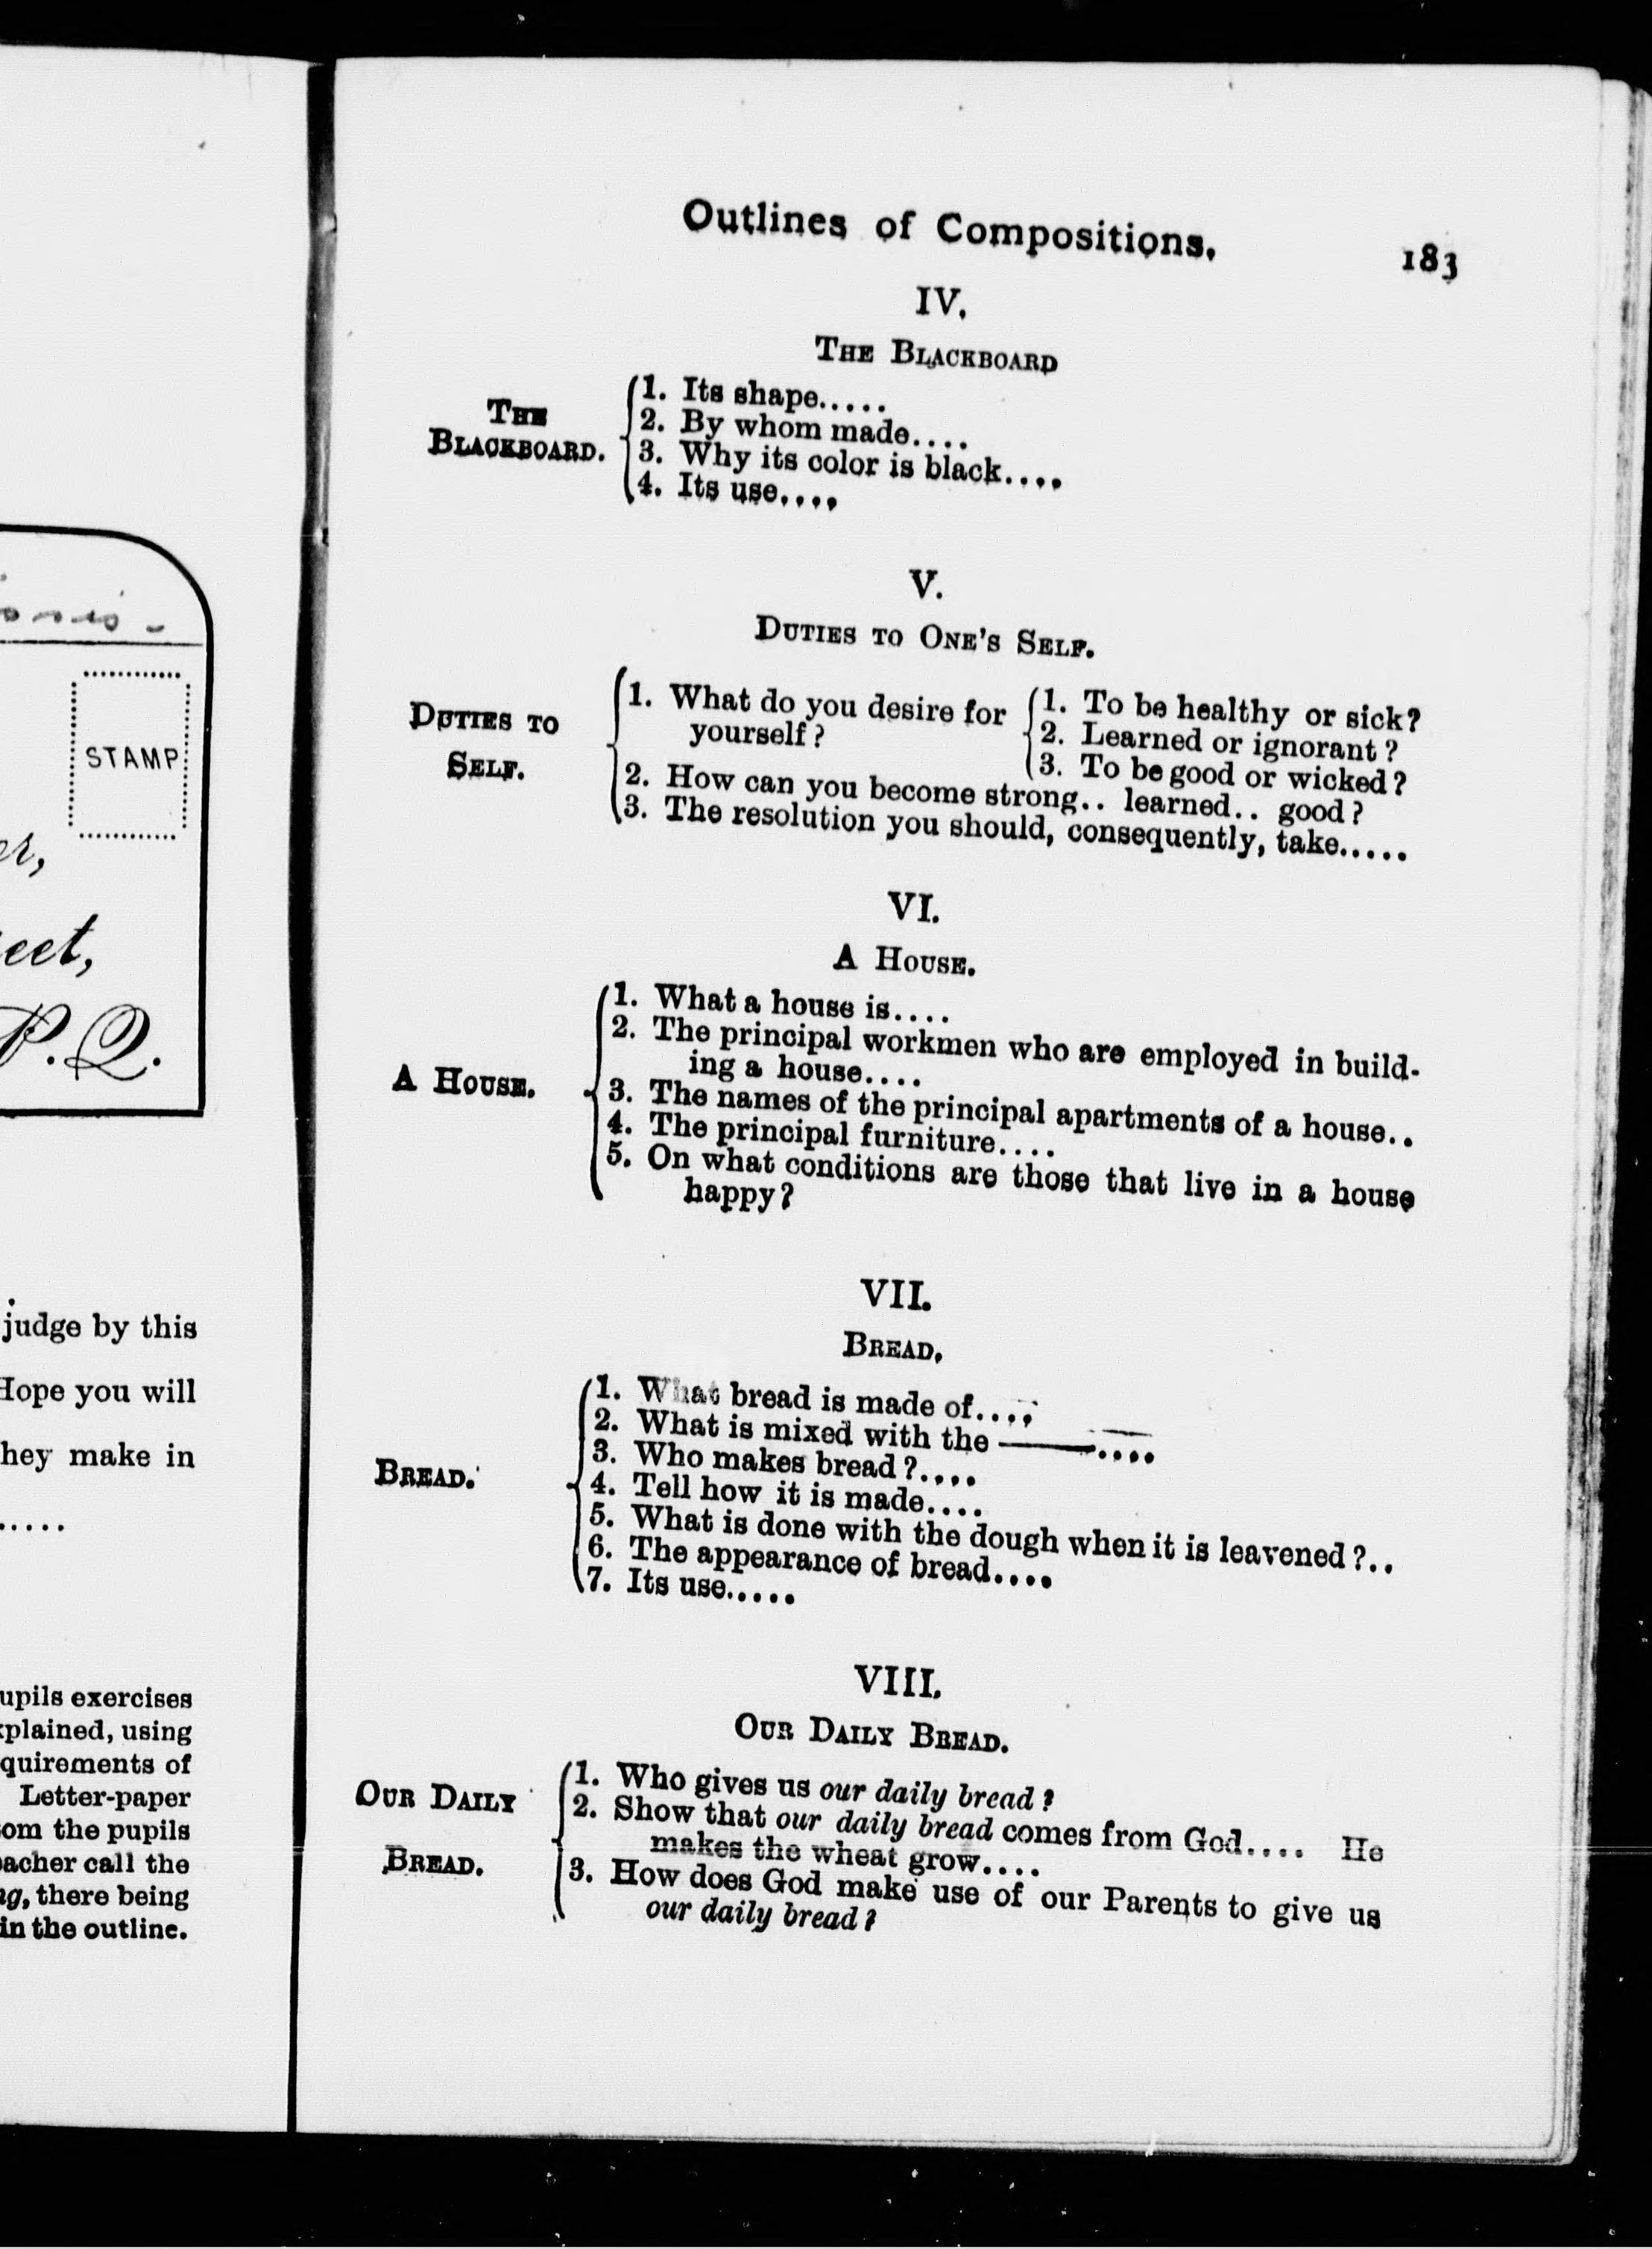 onis -
STAMP
er,
eet,
P.Q.
judge by this
Hope you will
hey make in
.....
upils exercises
xplained, using
quirements of
Letter-paper
om the pupils
eacher call the
ng, there being
in the outline.
Outlines of Compositions. 183
IV.
THE BLACKBOARD
THE
BLACKBOARD.
1. Its shape.....
2. By whom made....
3. Why its color is black....
4. Its use....
V.
DUTIES TO ONE'S SELF.
DUTIES TO
SELF.
1. What do you desire for
yourself?
1. To be healthy or sick?
2. Learned or ignorant?
3. To be good or wicked?
2. How can you become strong.. learned.. good?
3. The resolution you should, consequently, take.....
VI.
A HOUSE.
A HOUSE.
1. What a house is....
2. The principal workmen who are employed in build-
ing a house....
3. The names of the principal apartments of a house..
4. The principal furniture....
5. On what conditions are those that live in a house
happy?
VII.
BREAD.
BREAD.
1. What bread is made of....
2. What is mixed with the ———....
3. Who makes bread?....
4. Tell how it is made....
5. What is done with the dough when it is leavened?..
6. The appearance of bread....
7. Its use.....
VIII.
OUR DAILY BREAD.
OUR DAILY
BREAD.
1. Who gives us our daily bread?
2. Show that our daily bread comes from God.... He
makes the wheat grow....
3. How does God make use of our Parents to give us
our daily bread?